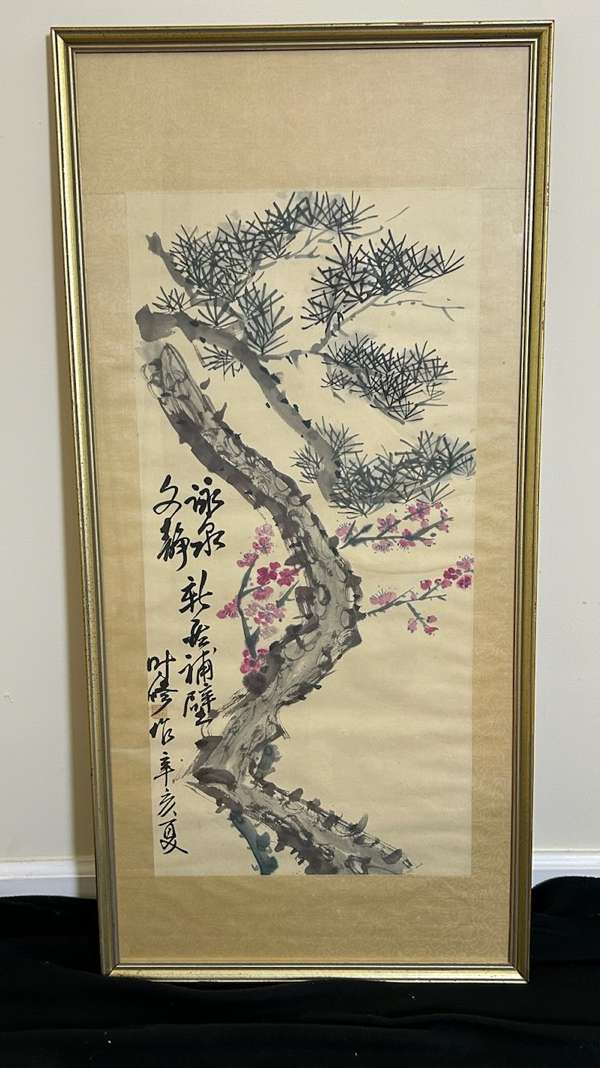 詠泉
文靜
新居補壁
作辛亥夏